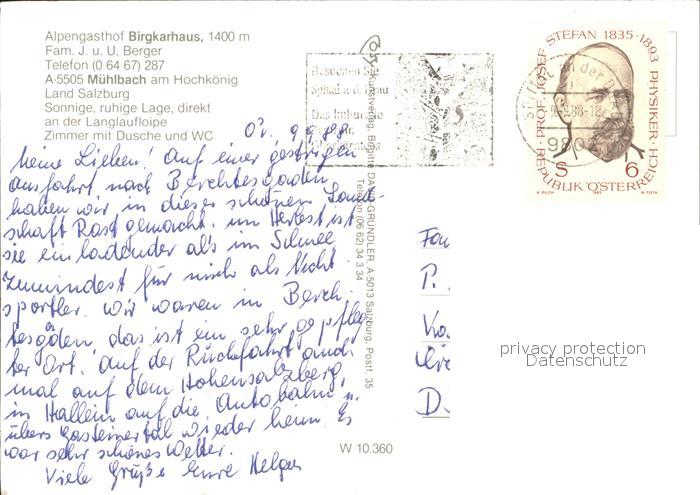 Alpengasthof Birgkarhaus, 1400 m
Fam. J. u. U. Berger
Telefon (0 64 67) 287
A-5505 Mühlbach am Hochkönig
Land Salzburg
Sonnige, ruhige Lage, direkt
an der Langlaufloipe
Zimmer mit Dusche und WC
9.9.88.
Meine Lieben! Auf einer gestrigen
Ausfahrt nach Berchtesgaden
haben wir in dieser schönen Land-
schaft Rast gemacht. im Herbst ist
sie einladender als im Schnee
Zumindest für mich als Nicht
sportler. Wir waren in Berch
tesgaden, das ist ein sehr gepfleg
ter Ort. Auf der Rückfahrt
mal auf dem Hohensalzberg,
in Hallein auf die Autobahn u.
übers Gasteinertal wieder heim. Es
war sehr schönes Wetter.
Viele Grüße Eure Helga
W 10.360
Kunstverlag Brigitte DAXGRUNDLER, A-5013 Salzburg, Postf. 35
Telefon (06 62) 34 3 34
Besuchen Sie
Spittal a.d. Drau
9802
REPUBLIK ÖSTERREICH · PROF. JOSEF STEFAN 1835-1893 PHYSIKER
S 6
Fam
P.
D.
privacy protection
Datenschutz